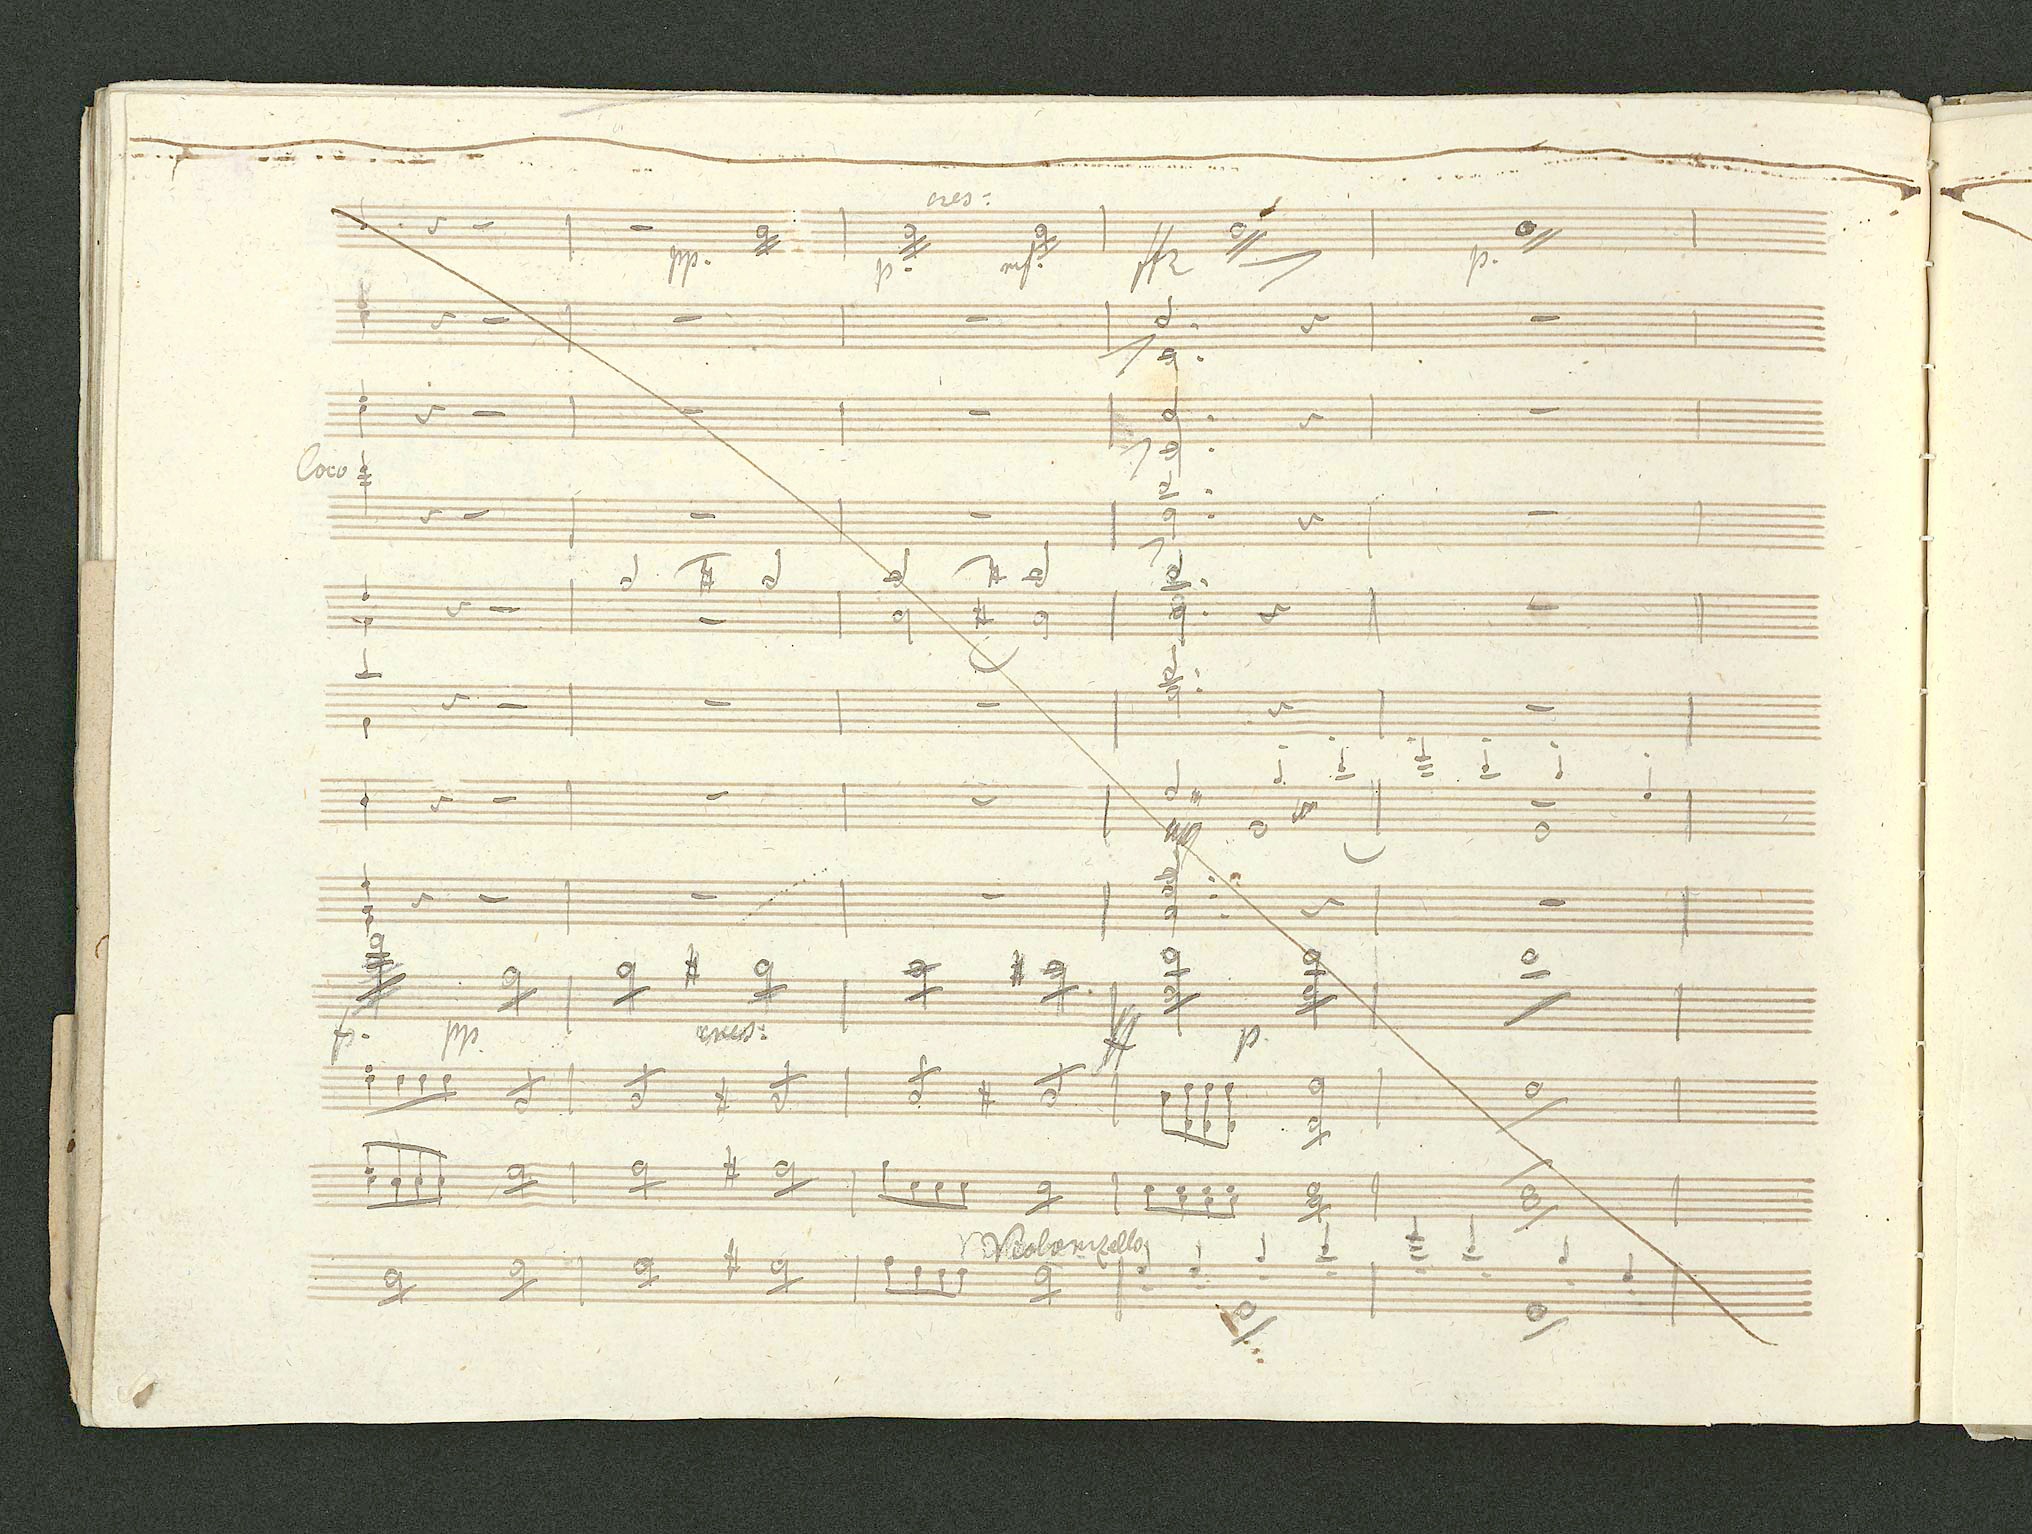 cres:
pp. p. mf: ffz p.
Loco
f. pp. cres: ff p.
Violonzello